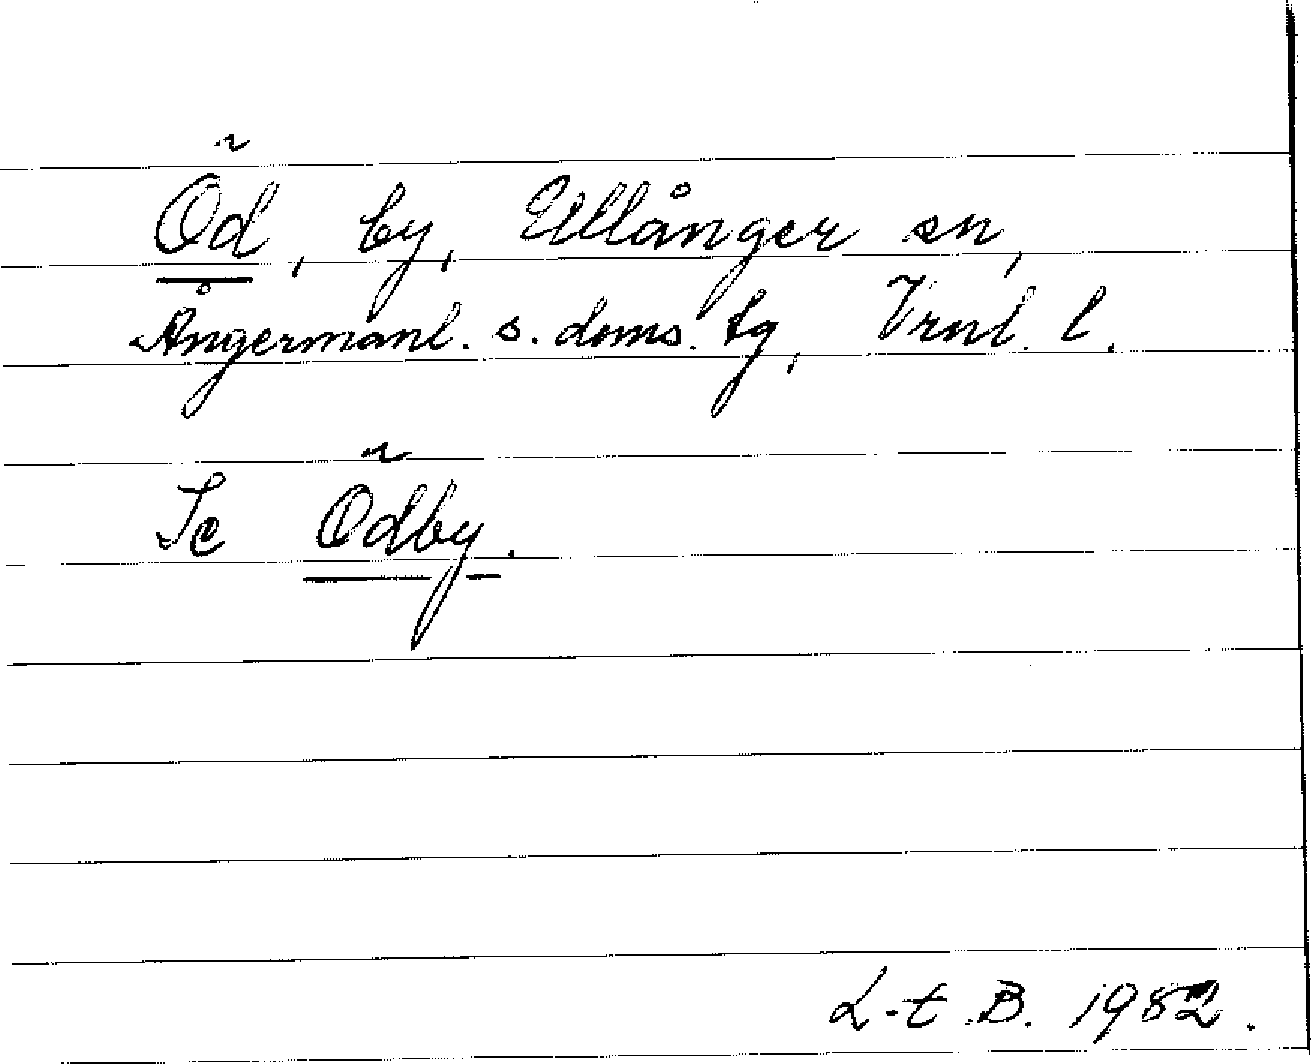 Öd, by, Ullånger sn,
Ångermanl. s. doms. tg, Vrnl. l.
Se Ödby.
L-t B. 1982.